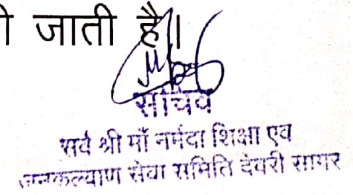 ी जाती है।
सचिव
सर्व श्री माँ नर्मदा शिक्षा एव
जनकल्याण सेवा समिति देवरी सागर